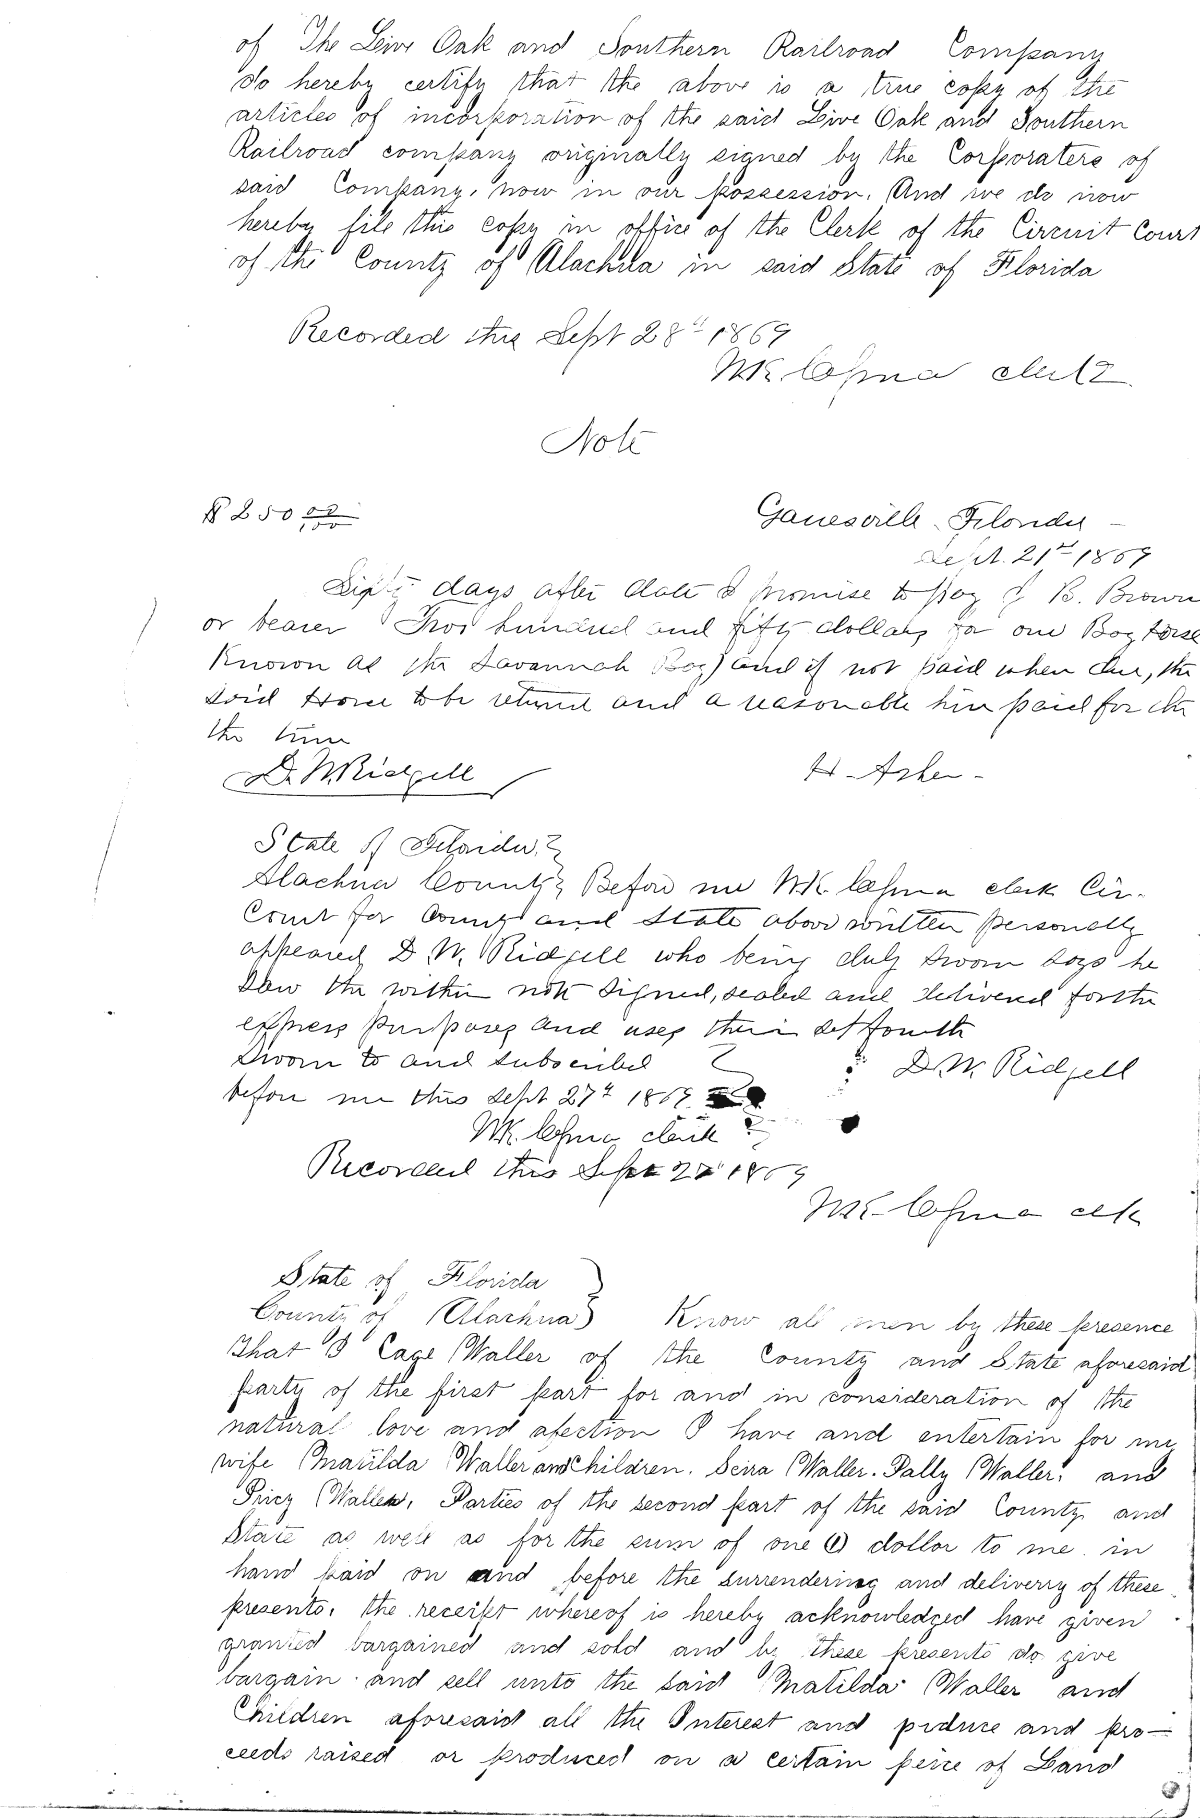 of The Live Oak and Southern Railroad Company
do hereby certify that the above is a true copy of the
articles of incorporation of the said Live Oak and Southern
Railroad company originally signed by the Corporaters of
said Company, now in our possession. And we do now
hereby file this copy in office of the Clerk of the Circuit Court
of the County of Alachua in said State of Florida
Recorded this Sept 28th 1869
Clerk
Note
$250 00/100
Gainesville Florida
Sept. 21st 1869
Sixty days after date I promise to pay J B. Brown
or bearer Two hundred and fifty dollars for one Bay Horse
Known as the Savannah Bay) and if not paid when due, the
said Horse to be returned and a reasonable hire paid for the
the time
D. W. Ridgell H. Asher
State of Florida
Alachua County Before me clerk Cir-
Court for County and State above written personally
appeared D. W. Ridgell who being duly sworn says he
saw the within note signed, sealed and delivered for the
express purposes and uses therin set fourth
Sworn to and subscribed D. W. Ridgell
before me this sept 27th 1869
clerk
Recorded this Sept 27 1869
clk
State of Florida
County of Alachua Know all men by these presence
That I Cage Waller of the County and State aforesaid
party of the first part for and in consideration of the
natural love and afection I have and entertain for my
wife Matilda Waller and Children. Waller. Waller. and
Waller, Parties of the second part of the said County and
State as well as for the sum of one (1) dollor to me in
hand paid on and before the surrendering and deliverry of these
presents, the receipt whereof is hereby acknowledged have given
granted bargained and sold and by these presents do give
bargain and sell unto the said Matilda Waller and
Children aforesaid all the Interest and produce and pro-
ceeds raised or produced on a certain peice of Land